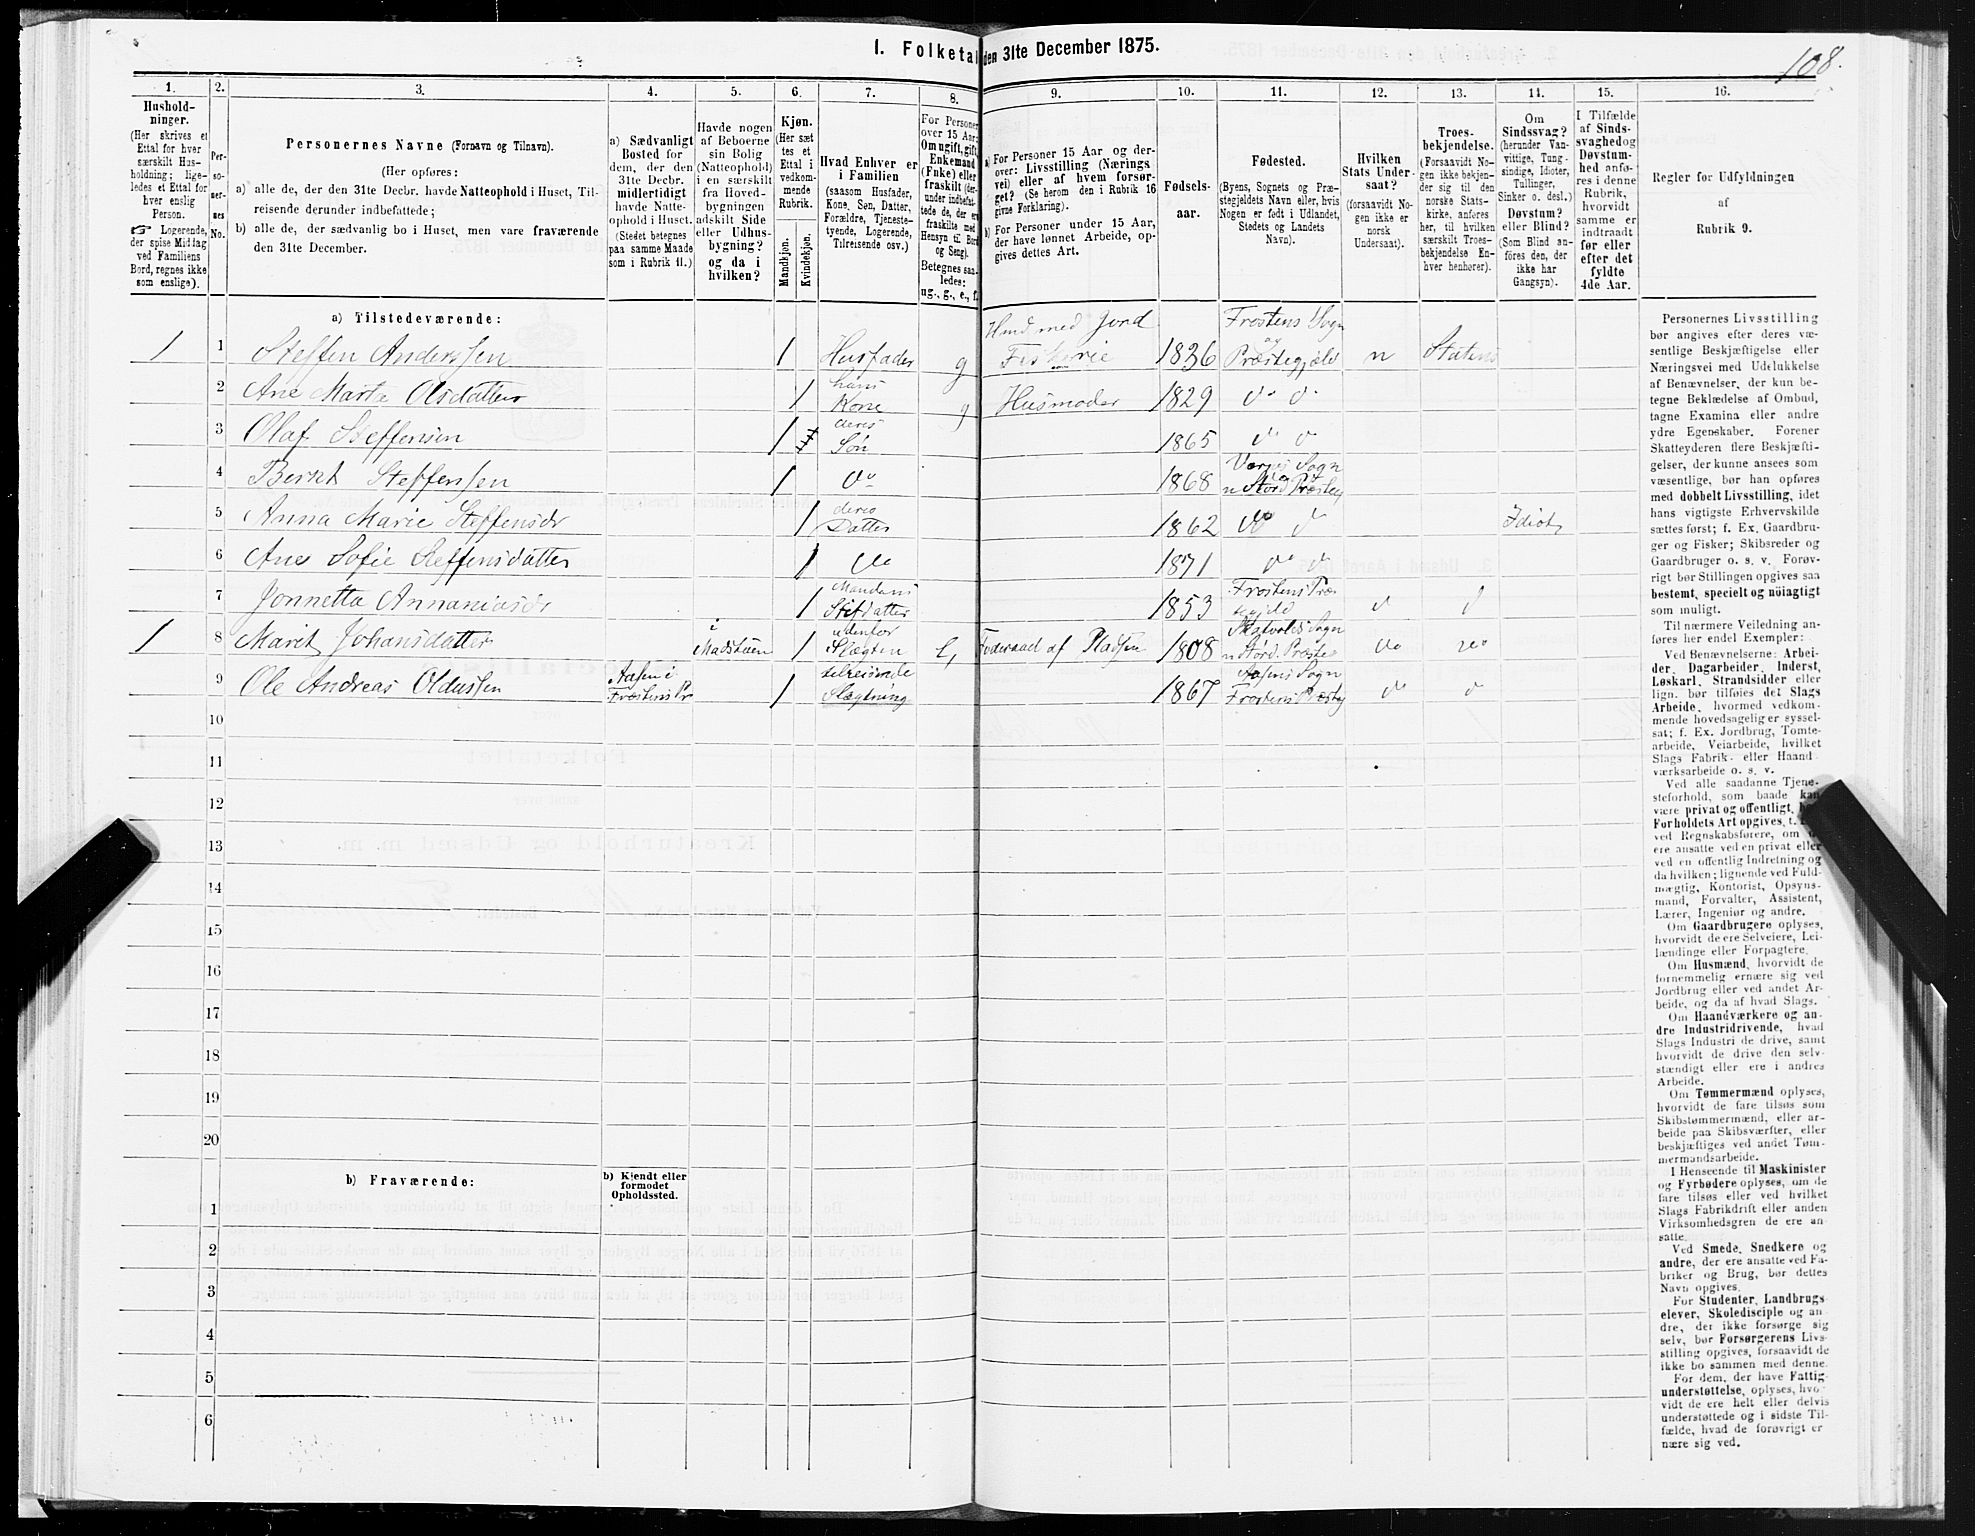 I. Folketal den 31te December 1875.
108.
1.
2.
3.
4.
5.
6.
7.
8.
9.
10.
11.
12.
13.
14.
15.
16.
Hushold-
ninger.
(Her skrives et
Ettal for hver
særskilt Hus-
holdning; lige-
ledes et Ettal for
hver enslig
Person.
☞ Logerende,
der spise Middag
ved Familiens
Bord, regnes ikke
som enslige).
Per-
so-
ner-
nes
No.
Personernes Navne (Fornavn og Tilnavn).
(Her opføres:
a) alle de, der den 31te Decbr. havde Natteophold i Huset, Til-
reisende derunder indbefattede;
b) alle de, der sædvanlig bo i Huset, men vare fraværende
den 31te December.
a) Sædvanligt
Bosted for
dem, der den
31te Decbr.
midlertidigt
havde Natte-
ophold i Huset.
(Stedet betegnes
paa samme Maade
som i Rubrik 11.)
Havde nogen
af Beboerne
sin Bolig
(Natteophold)
i en særskilt
fra Hoved-
bygningen
adskilt Side
eller Udhus-
bygning?
og da i
hvilken?
Kjøn.
(Her sæt
tes et
Ettal i
vedkom-
mende
Rubrik.
Mandkjøn.
Kvindekjøn.
Hvad Enhver er
i Familien
(saasom Husfader,
Kone, Søn, Datter,
Forældre, Tjeneste-
tyende, Logerende,
Tilreisende osv.)
For Personer
over 15 Aar:
Om ugift, gift,
Enkemand
(Enke) eller
fraskilt (der-
under indbefat-
tede de, der er
fraskilte med
Hensyn til Bord
og Seng).
Betegnes saa-
ledes:
ug., g., e., f.
a) For Personer 15 Aar og der-
over: Livsstilling (Nærings
vei) eller af hvem forsør-
get? (Se herom den i Rubrik 16
givne Forklaring).
b) For Personer under 15 Aar,
der have lønnet Arbeide, op-
gives dettes Art.
Fødsels-
aar.
Fødested.
(Byens, Sognets og Præ-
stegjeldets Navn eller, hvis
Nogen er født i Udlandet,
Stedets og Landets
Navn).
Hvilken
Stats Under-
saat?
(forsaavidt No-
gen ikke er
norsk
Undersaat).
Troes-
bekjendelse.
(Forsaavidt No-
gen ikke bekjen-
der sig til den
norske Stats-
kirke, anføres
her, til hvilken
særskilt Troes-
bekjendelse En-
hver henhører).
Om
Sindssvag?
(herunder Van-
vittige, Tung-
sindige, Idioter,
Tullinger,
Sinker o. desl.)
Døvstum?
eller Blind?
(Som Blind an-
føres den, der
ikke har
Gangsyn).
I Tilfælde
af Sinds-
svaghed og
Døvstum-
hed anfø-
res i denne
Rubrik,
hvorvidt
samme er
indtraadt
før eller
efter det
fyldte
4de Aar.
Regler for Udfyldningen
af
Rubrik 9.
a) Tilstedeværende:
1 1 Steffen Anderssen 1 Husfader g Husmd med Jord Fiskerie 1836 Frostens Sogn og Præstegjeld n Statens
2 Ane Marta Olsdatter 1 hans Kone g Husmoder 1829 do do
3 Olaf Steffensen 1 deres Søn 1865 do do
4 Steffensen 1 do 1868 Sogn Størd Præsteg
5 Anna Marie Steffensdr 1 deres Datter 1862 do do Idiot
6 Ane Sofie Steffensdatter 1 do 1871 do do
7 Jonnetta Annaniasdr 1 Mandens Stifdatter 1853 Frostens Præstegjeld do do
1 8 Marit Johansdatter i Madstuen 1 udenfor Slægten e Føderaad af Pladsen 1808 Skatvolds Sogn n Størd. Præste do do
9 Ole Andreas Oldussen Aasen i Frostens Pr 1 tilreisende Slægtning 1867 Aasens Sogn Frostens Præsteg do do
10
11
12
13
14
15
16
17
18
19
20
b) Fraværende:
b) Kjendt eller
formodet
Opholdssted.
1
2
3
4
5
6
Personernes Livsstilling
bør angives efter deres væ-
sentlige Beskjæftigelse eller
Næringsvei med Udelukkelse
af Benævnelser, der kun be-
tegne Beklædelse af Ombud,
tagne Examina eller andre
ydre Egenskaber. Forener
Skatteyderen flere Beskjæfti-
gelser, der kunne ansees som
væsentlige, bør han opføres
med dobbelt Livsstilling, idet
hans vigtigste Erhvervskilde
sættes først; f. Ex. Gaardbru-
ger og Fisker; Skibsreder og
Gaardbruger o. s. v. Forøv-
rigt bør Stillingen opgives saa
bestemt, specielt og nøiagtigt
som muligt.
Til nærmere Veiledning an-
føres her endel Exempler:
Ved Benævnelserne: Arbei-
der, Dagarbeider, Inderst,
Løskarl, Strandsidder eller
lign. bør tilføies det Slags
Arbeide, hvormed vedkom-
mende hovedsagelig er syssel-
sat; f. Ex. Jordbrug, Tomte-
arbeide, Veiarbeide, hvilket
Slags Fabrik- eller Haand
værksarbeide o. s. v.
Ved alle saadanne Tjene-
steforhold, som baade kan
være privat og offentligt, bør
Forholdets Art opgives, t.
ved Regnskabsførere, om
ere ansatte ved en privat eller
ved en offentlig Indretning og
da hvilken; lignende ved Fuld-
mægtig, Kontorist, Opsyns-
mand, Forvalter, Assistent,
Lærer, Ingeniør og andre.
Om Gaardbrugere oplyses,
hvorvidt de ere Selveiere, Lei-
lændinge eller Forpagtere.
Om Husmænd, hvorvidt de
fornemmelig ernære sig ved
Jordbrug eller ved andet Ar-
beide, og da af hvad Slags.
Om Haandværkere og an-
dre Industridrivende, hvad
Slags Industri de drive, samt
hvorvidt de drive den selv-
stændigt eller ere i andres
Arbeide.
Om Tømmermænd oplyses,
hvorvidt de fare tilsøs som
Skibstømmermænd, eller ar-
beide paa Skibsværfter, eller
beskjæftiges ved andet Tøm-
mermandsarbeide.
I Henseende til Maskinister
og Fyrbødere oplyses, om de
fare tilsøs eller ved hvilket
Slags Fabrikdrift eller anden
Virksomhedsgren de ere an-
satte.
Ved Smede, Snedkere og
andre, der ere ansatte ved Fa-
briker og Brug, bør dettes
Navn opgives.
For Studenter, Landbrugs
elever, Skoledisciple og an-
dre, der ikke forsørge sig
selv, bør Forsørgerens Livs-
stilling opgives, forsaavidt de
ikke bo sammen med denne.
For dem, der have Fattig-
understøttelse, oplyses, hvor-
vidt de ere helt eller delvis
understøttede og i sidste Til-
fælde, hvad de forøvrigt er
nære sig ved.